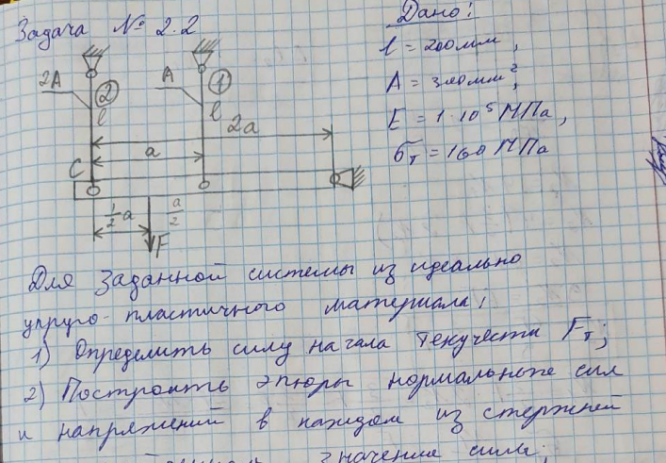 Задача № 2.2
Дано:
l = 200мм,
A = 300мм²
E = 1·10⁵ МПа,
σт = 160 МПа
2A
②
l
A
①
l
2a
a
C
½a
a/2
F
Для заданной системы из идеально
упруго-пластичного материала:
1) Определить силу начала текучести Fт;
2) Построить эпюры нормальные сил
и напряжений в каждом из стержней
значение силы;